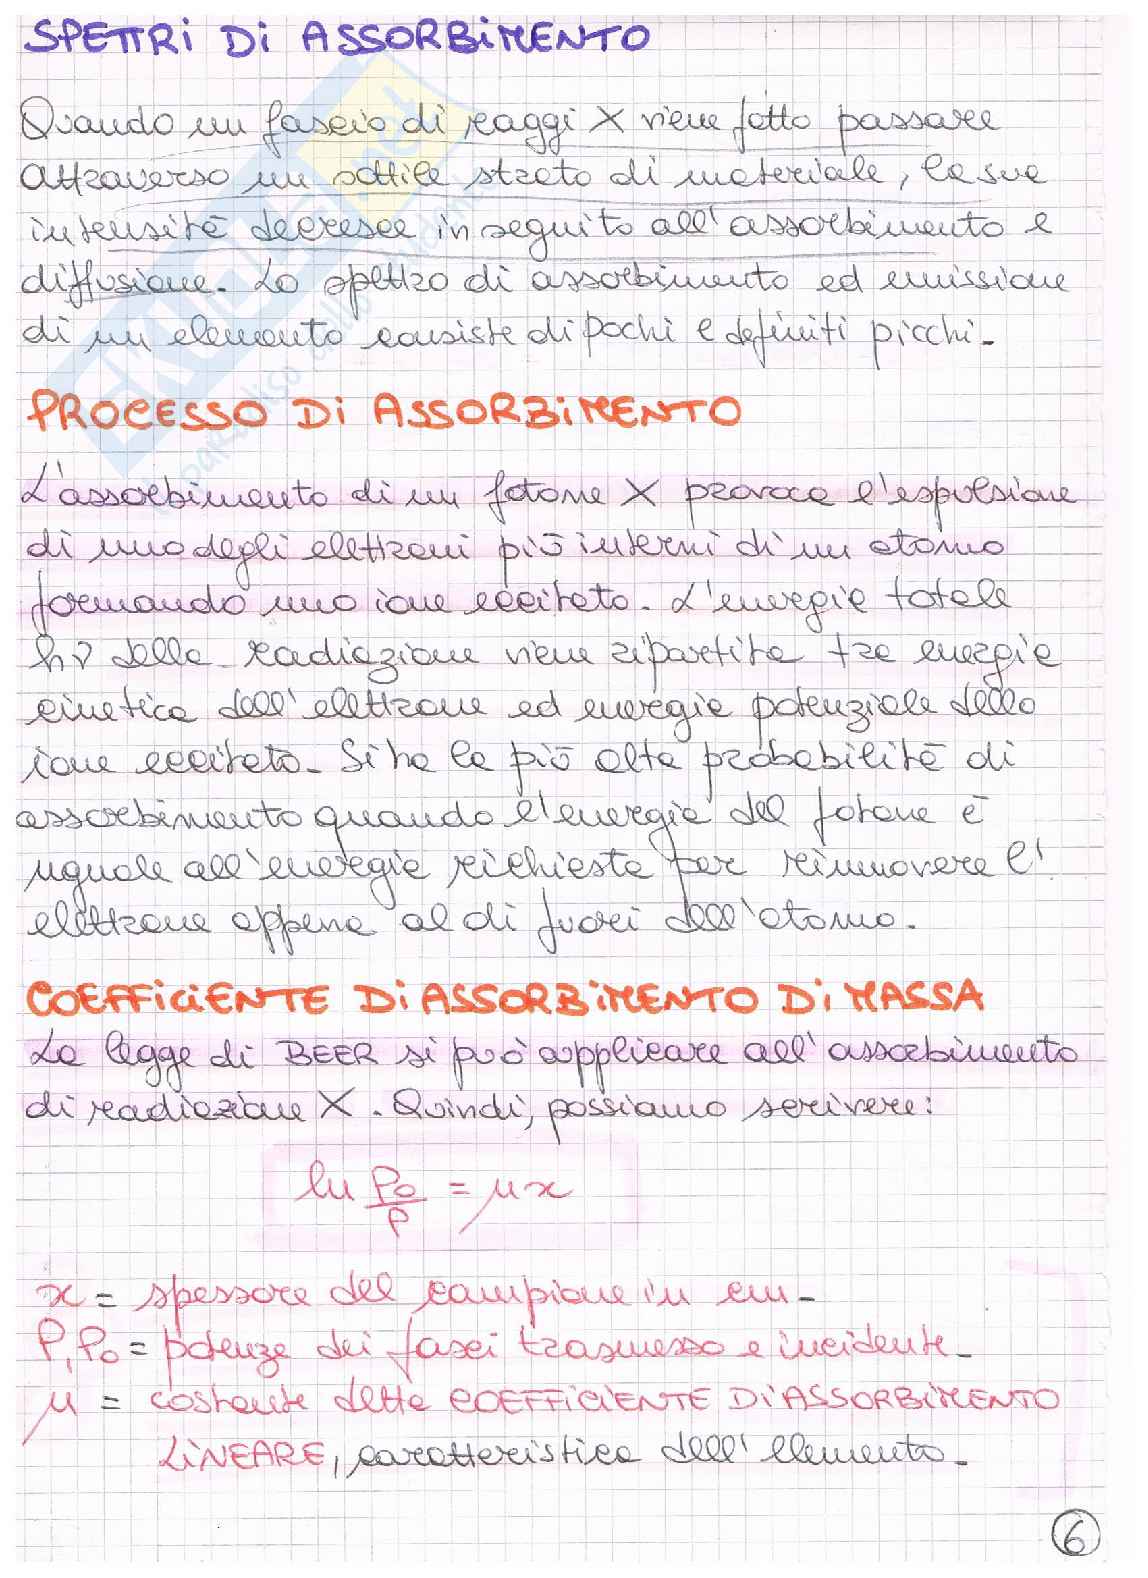 SPETTRI DI ASSORBIMENTO
Quando un fascio di raggi X viene fatto passare
attraverso un sottile strato di materiale, la sua
intensità decresce in seguito all'assorbimento e
diffusione. Lo spettro di assorbimento ed emissione
di un elemento consiste di pochi e definiti picchi.
PROCESSO DI ASSORBIMENTO
L'assorbimento di un fotone X provoca l'espulsione
di uno degli elettroni più interni di un atomo
formando uno ione eccitato. L'energia totale
hν della radiazione viene ripartita tra energia
cinetica dell'elettrone ed energia potenziale dello
ione eccitato. Si ha la più alta probabilità di
assorbimento quando l'energia del fotone è
uguale all'energia richiesta per rimuovere l'
elettrone appena al di fuori dell'atomo.
COEFFICIENTE DI ASSORBIMENTO DI MASSA
La legge di BEER si può applicare all'assorbimento
di radiazione X. Quindi, possiamo scrivere:
ln P₀/P = μx
x = spessore del campione in cm.
P, P₀ = potenze dei fasci trasmesso e incidente.
μ = costante detta COEFFICIENTE DI ASSORBIMENTO
LINEARE, caratteristica dell'elemento.
6